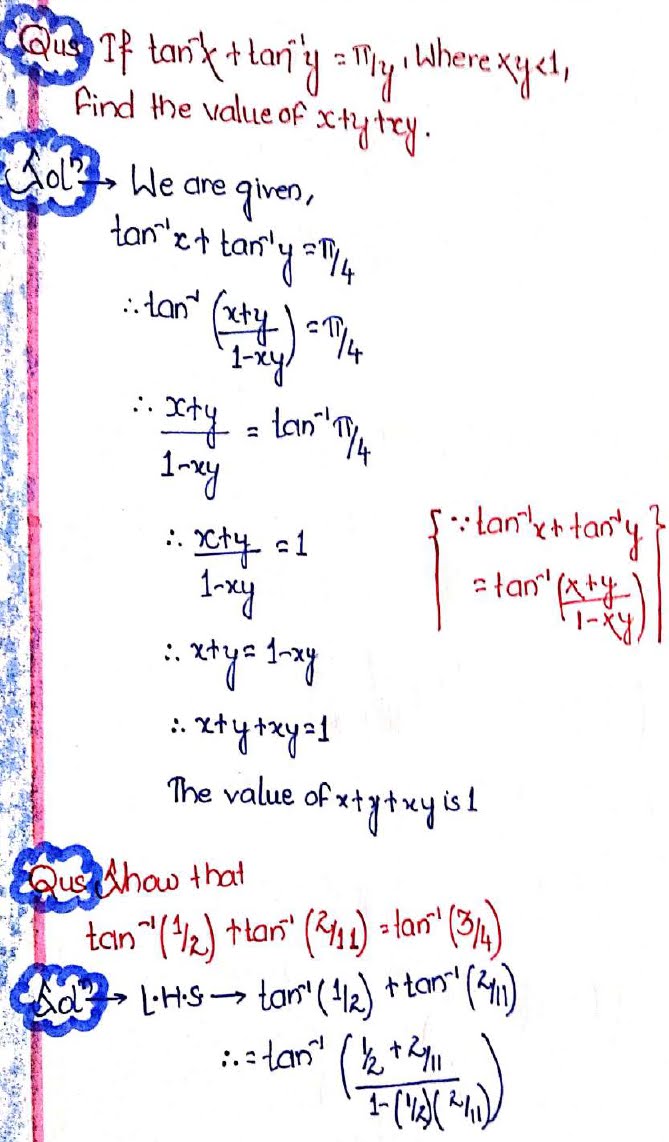 Qus If tan⁻¹x + tan⁻¹y = π/y, Where xy<1,
find the value of x+y+xy.
Solⁿ → We are given,
tan⁻¹x + tan⁻¹y = π/4
∴ tan⁻¹ (x+y / 1-xy) = π/4
∴ x+y / 1-xy = tan⁻¹ π/4
∴ x+y / 1-xy = 1
{∵ tan⁻¹x + tan⁻¹y
= tan⁻¹ (x+y / 1-xy)}
∴ x+y = 1-xy
∴ x+y+xy=1
The value of x+y+xy is 1
Qus Show that
tan⁻¹(1/2) + tan⁻¹(2/11) = tan⁻¹(3/4)
Solⁿ → L.H.S → tan⁻¹(1/2) + tan⁻¹(2/11)
∴ = tan⁻¹ (1/2 + 2/11 / 1-(1/2)(2/11))